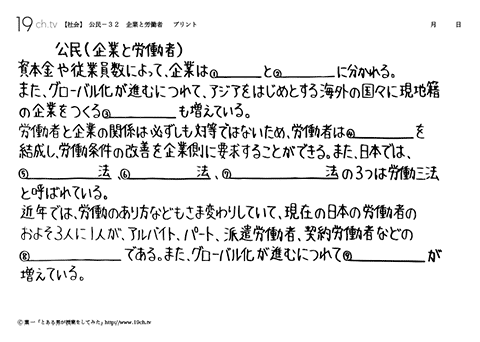 19ch.tv 【社会】 公民-32 企業と労働者 プリント 月 日
公民(企業と労働者)
資本金や従業員数によって、企業は①______と②______に分かれる。
また、グローバル化が進むにつれて、アジアをはじめとする海外の国々に現地籍
の企業をつくる③______も増えている。
労働者と企業の関係は必ずしも対等ではないため、労働者は④______を
結成し、労働条件の改善を企業側に要求することができる。また、日本では、
⑤______法、⑥______法、⑦______法の3つは労働三法
と呼ばれている。
近年では、労働のあり方などもさま変わりしていて、現在の日本の労働者の
およそ3人に1人が、アルバイト、パート、派遣労働者、契約労働者などの
⑧______である。また、グローバル化が進むにつれて⑨______が
増えている。
© 葉一「とある男が授業をしてみた」http://www.19ch.tv